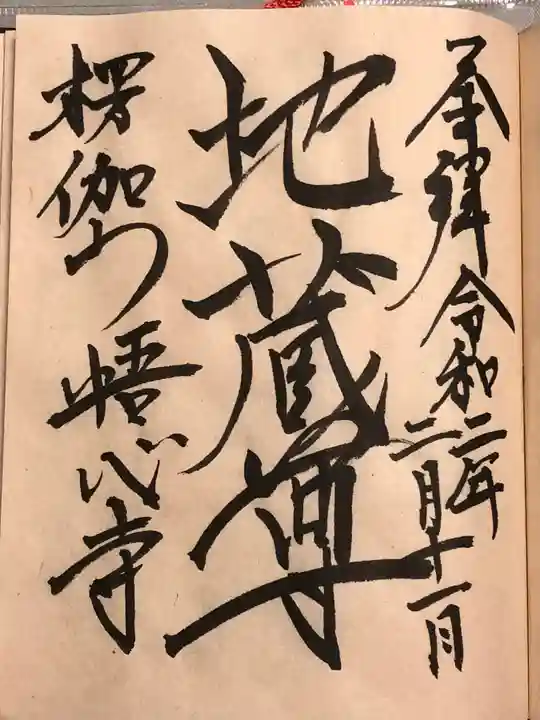 奉拝 令和二年
二月十一日
地蔵尊
楞伽山 悟心寺